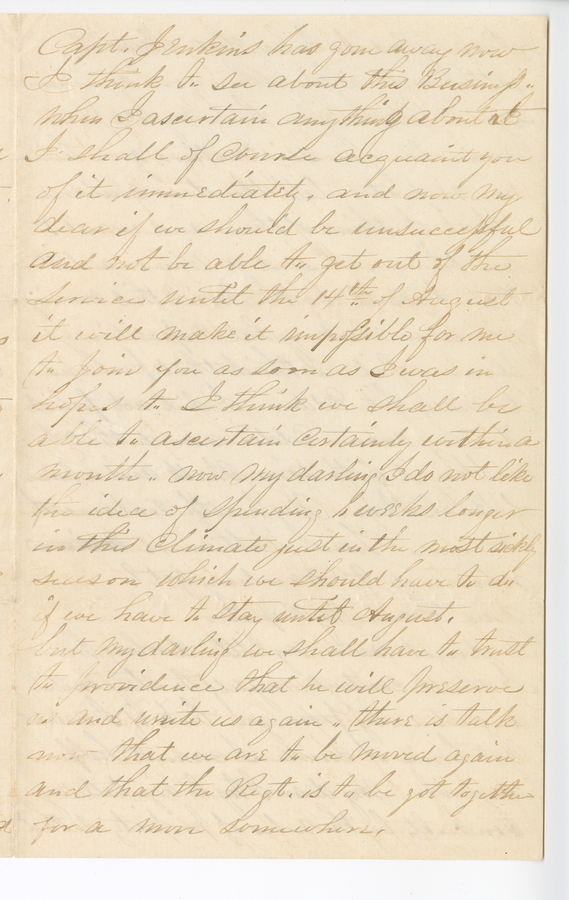 Capt. Jenkins has gone away now
I think to see about this Business,
when I ascertain anything about it
I shall of course acquaint you
of it immediately. and now my
dear if we should be unsuccessful
and not be able to get out of the
service until the 14th of August
it will make it impossible for me
to join you as soon as I was in
hopes to I think we shall be
able to ascertain certainly within a
month. now my darling I do not like
the idea of spending 6 weeks longer
in this Climate just in the most sickly
season which we should have to do
if we have to stay until August.
but my darling we shall have to trust
to providence that he will preserve
us and unite us again. there is talk
now that we are to be moved again
and that the Regt. is to be got together
for a move somewhere.